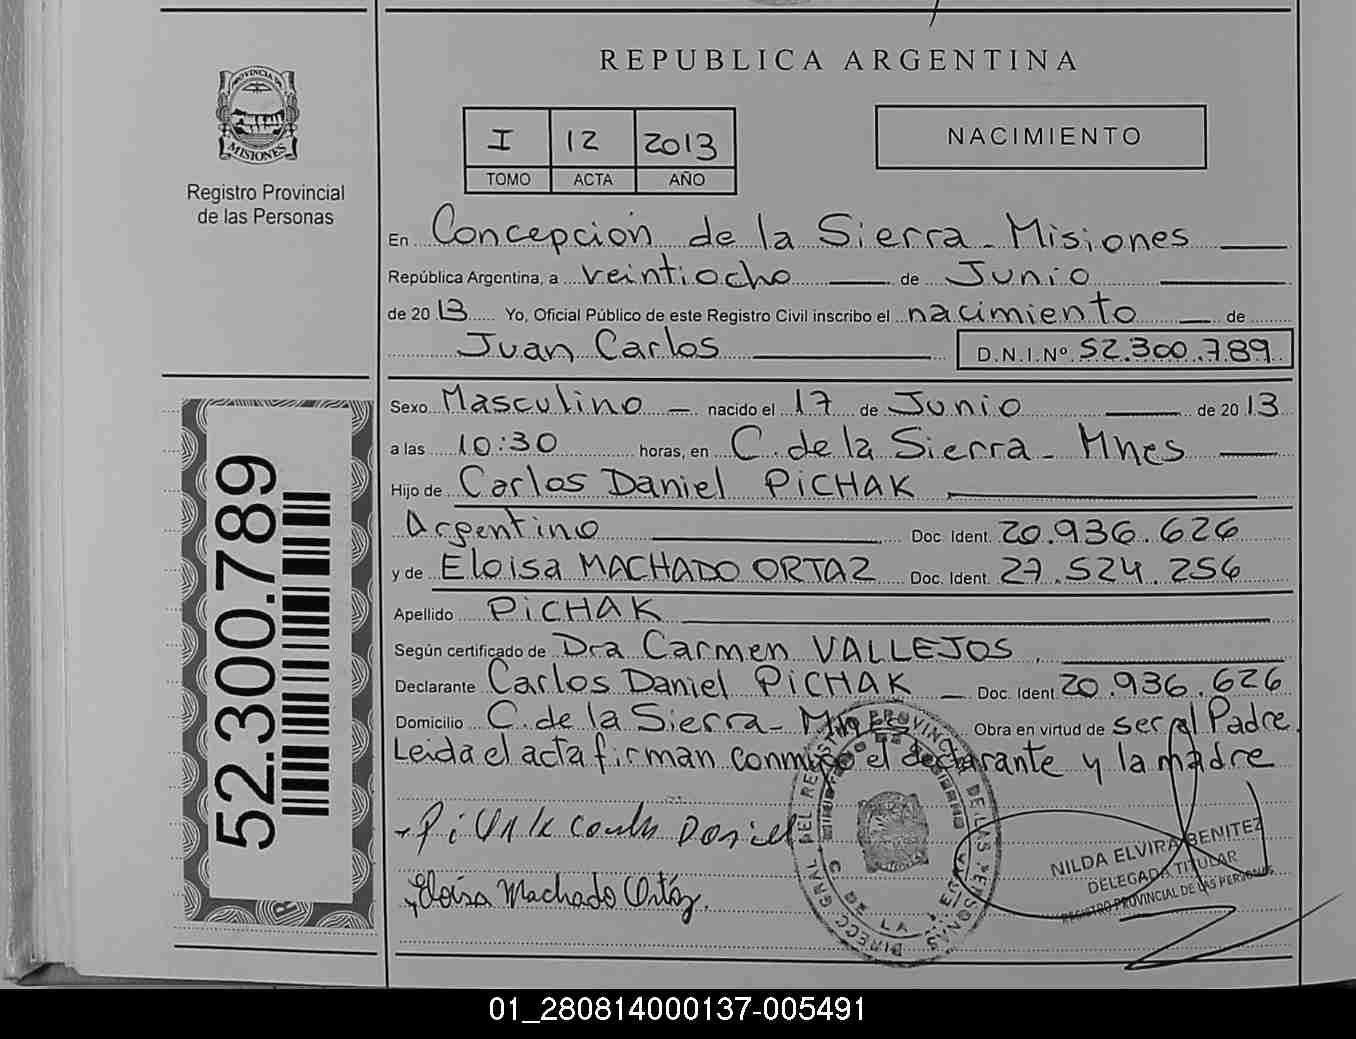 REPUBLICA ARGENTINA
PROVINCIA DE
MISIONES
Registro Provincial
de las Personas
I 12 2013
TOMO ACTA AÑO
NACIMIENTO
En Concepción de la Sierra - Misiones
República Argentina, a veintiocho de Junio
de 2013 Yo, Oficial Público de este Registro Civil inscribo el nacimiento de
Juan Carlos D.N.I.Nº 52.300.789
Sexo Masculino nacido el 17 de Junio de 2013
a las 10:30 horas, en C. de la Sierra - Mnes
Hijo de Carlos Daniel PiCHAK
Argentino Doc. Ident. 20.936.626
y de Eloisa MACHADO ORTAZ Doc. Ident. 27.524.256
Apellido PiCHAK
Según certificado de Dra Carmen VALLEJOS
Declarante Carlos Daniel PiCHAK Doc. Ident 20.936.626
Domicilio C. de la Sierra - Mnes Obra en virtud de ser el Padre.
Leida el acta firman conmigo el declarante y la madre
52.300.789
PiCHAK Carlos Daniel
Eloísa Machado Ortáz.
DIRECC. GRAL. DEL REGISTRO PROVINCIAL DE LAS PERSONAS
C. DE LA SIERRA
NILDA ELVIRA BENITEZ
DELEGADA TITULAR
REGISTRO PROVINCIAL DE LAS PERSONAS
01_280814000137-005491